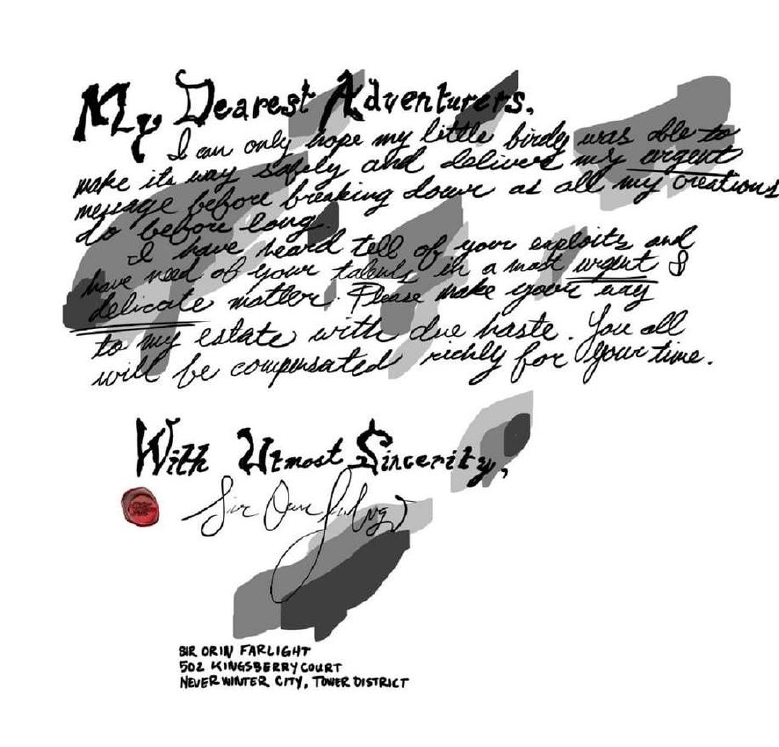 My Dearest Adventurers,
I can only hope my little birdy was able to
make its way safely and delivers my urgent
message before breaking down as all my creations
do before long.
I have heard tell of your exploits and
have need of your talents in a most urgent &
delicate matter. Please make your way
to my estate with due haste. You all
will be compensated richly for your time.
With Utmost Sincerity,
Sir Orin
SIR ORIN FARLIGHT
502 KINGSBERRY COURT
NEVERWINTER CITY, TOWER DISTRICT